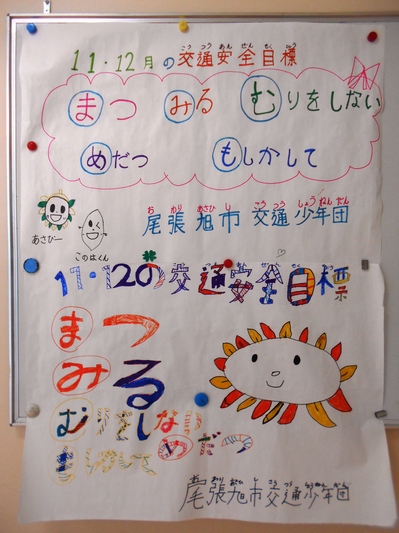 11・12月の交通安全目標
まつ みる むりをしない
めだつ もしかして
尾張旭市 交通少年団
あさぴー
このはくん
11・12の交通安全目標
まつ
みる
むりをしない
めだつ
もしかして
尾張旭市交通少年団